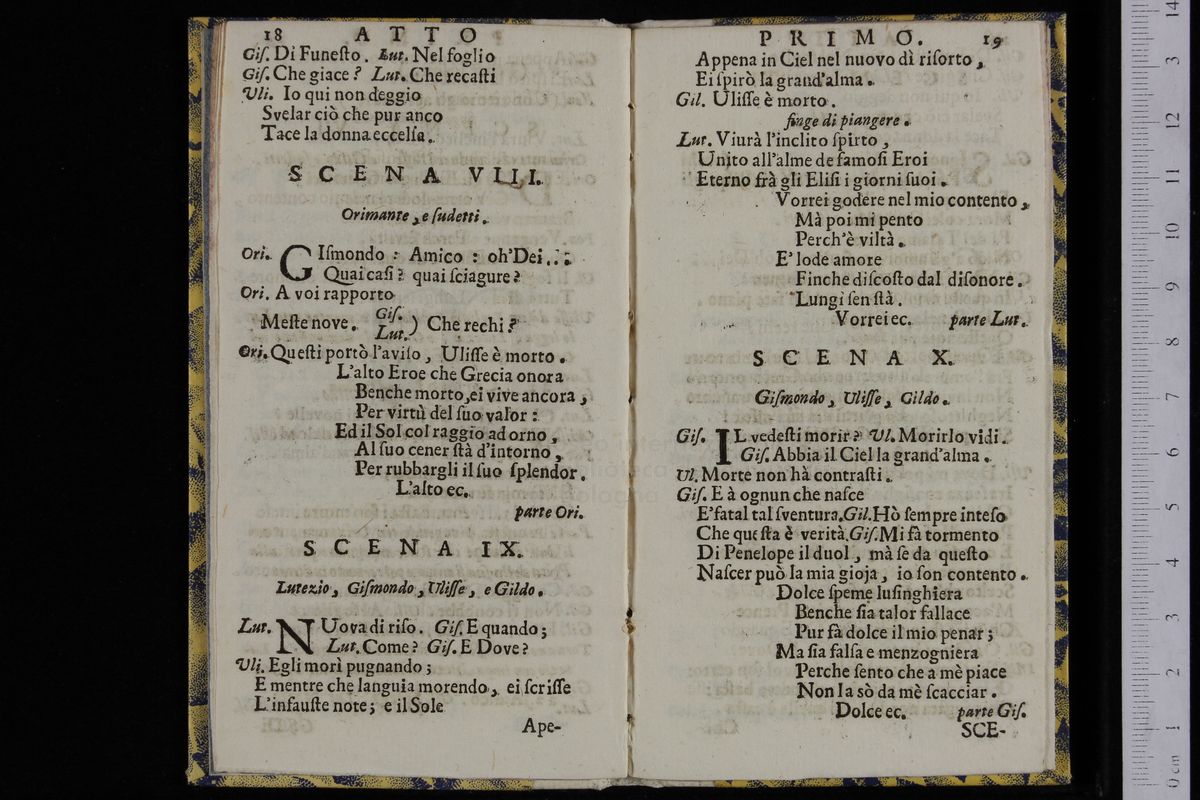 18 ATTO
Giſ. Di Funeſto. Lut. Nel foglio
Giſ. Che giace? Lut. Che recaſti
Uli. Io qui non deggio
Svelar ciò che pur anco
Tace la donna eccelſa.
SCENA VIII.
Orimante, e ſudetti.
Ori. GIſmondo: Amico: oh'Dei...
Quai caſi? quai ſciagure?
Ori. A voi rapporto
Meſte nove. Giſ. Lut. ) Che rechi?
Ori. Queſti portò l'aviſo, Uliſſe è morto.
L'alto Eroe che Grecia onora
Benche morto, ei vive ancora,
Per virtù del ſuo valor:
Ed il Sol col raggio adorno,
Al ſuo cener ſtà d'intorno,
Per rubbargli il ſuo ſplendor.
L'alto ec.
parte Ori.
SCENA IX.
Lutezio, Giſmondo, Uliſſe, e Gildo.
Lut. NUova di riſo. Giſ. E quando;
Lut. Come? Giſ. E Dove?
Uli. Egli morì pugnando;
E mentre che languia morendo, ei ſcriſſe
L'infauſte note; e il Sole
Ape-
PRIMO. 19
Appena in Ciel nel nuovo dì riſorto,
Ei ſpirò la grand'alma.
Gil. Uliſſe è morto.
finge di piangere.
Lut. Viurà l'inclito ſpirto,
Unito all'alme de famoſi Eroi
Eterno frà gli Eliſi i giorni ſuoi.
Vorrei godere nel mio contento,
Mà poi mi pento
Perch'è viltà.
E' lode amore
Finche diſcoſto dal diſonore.
Lungi ſen ſtà.
Vorrei ec. parte Lut.
SCENA X.
Giſmondo, Uliſſe, Gildo.
Giſ. IL vedeſti morir? Ul. Morirlo vidi.
Giſ. Abbia il Ciel la grand'alma.
Ul. Morte non hà contraſti.
Giſ. E à ognun che naſce
E' fatal tal ſventura. Gil. Hò ſempre inteſo
Che queſta è verità. Giſ. Mi fà tormento
Di Penelope il duol, mà ſe da queſto
Naſcer può la mia gioja, io ſon contento.
Dolce ſpeme luſinghiera
Benche ſia talor fallace
Pur fà dolce il mio penar;
Ma ſia falſa e menzogniera
Perche ſento che a mè piace
Non la sò da mè ſcacciar.
Dolce ec. parte Giſ.
SCE-
0 cm 1 2 3 4 5 6 7 8 9 10 11 12 13 14